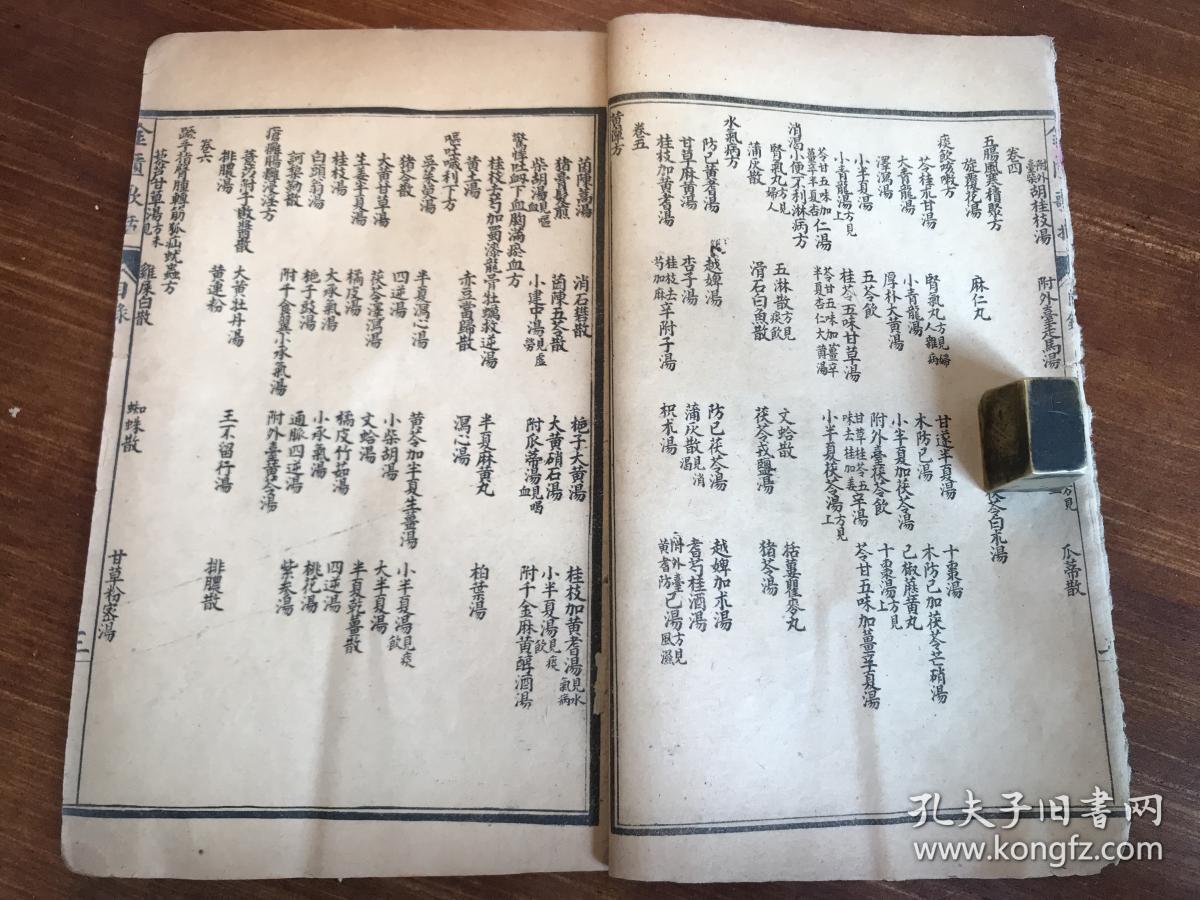 附外臺柴胡桂枝湯
附外臺走馬湯
瓜蒂散
卷四
五臟風寒積聚方
旋覆花湯
麻仁丸
痰飲咳嗽方
苓桂朮甘湯
腎氣丸方見婦人雜病
甘遂半夏湯
十棗湯
大青龍湯
小青龍湯
木防已湯
木防已加茯苓芒硝湯
澤瀉湯
厚朴大黃湯
小半夏加茯苓湯
己椒藶黃丸
小半夏湯
五苓飲
附外臺茯苓飲
十棗湯方見上
小青龍湯方見上
桂苓五味甘草湯
苓甘五味加薑辛夏湯
苓甘五味加薑辛半夏杏仁湯
苓甘五味加薑辛半夏杏仁大黃湯
小半夏茯苓湯方見上
消渴小便不利淋病方
腎氣丸方見婦人
五淋散方見痰飲
文蛤散
栝蔞瞿麥丸
蒲灰散
滑石白魚散
茯苓戎鹽湯
豬苓湯
水氣病方
防已黃耆湯
越婢湯
防已茯苓湯
越婢加朮湯
甘草麻黃湯
杏子湯
蒲灰散見消渴
耆芍桂酒湯
桂枝加黃耆湯
桂枝去芍加麻辛附子湯
枳朮湯
附外臺防己黃耆湯方見風濕
卷五
黃疸方
茵陳蒿湯
消石礬散
梔子大黃湯
桂枝加黃耆湯見水氣病
豬膏髮煎
茵陳五苓散
大黃硝石湯
小半夏湯見痰飲
柴胡湯見嘔血
小建中湯見虛勞
附瓜蒂湯見暍
附千金麻黃醇酒湯
驚悸吐衄下血胸滿瘀血方
桂枝去芍加蜀漆龍骨牡蠣救逆湯
半夏麻黃丸
柏葉湯
黃土湯
赤豆當歸散
瀉心湯
嘔吐噦利下方
吳茱萸湯
半夏瀉心湯
黃芩加半夏生薑湯
小半夏湯見痰飲
豬苓散
四逆湯
小柴胡湯
大半夏湯
大黃甘草湯
茯苓澤瀉湯
文蛤湯
半夏乾薑散
生姜半夏湯
橘皮湯
橘皮竹茹湯
四逆湯
桂枝湯
大承氣湯
小承氣湯
桃花湯
白頭翁湯
梔子豉湯
通脈四逆湯
紫參湯
訶黎勒散
附千金翼小承氣湯
附外臺黃芩湯
瘡癰腸癰浸淫方
薏苡附子敗醬散
大黃牡丹湯
王不留行湯
排膿散
排膿湯
黃連粉
卷六
趺手指臂腫轉筋狐疝蚘蟲方
雞屎白散
蜘蛛散
甘草粉蜜湯
金匱歌括
目錄
三
孔夫子旧书网
www.kongfz.com